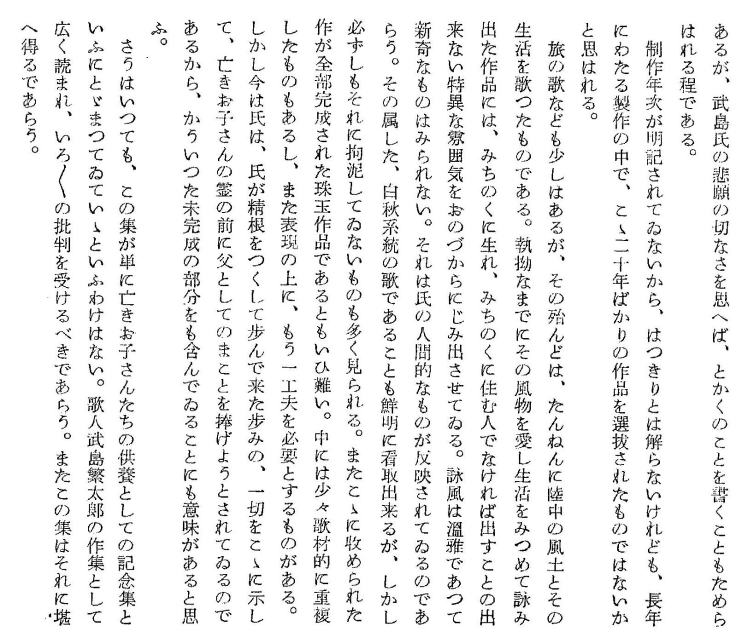 あるが、武島氏の悲願の切なさを思へば、とかくのことを書くこともためら
はれる程である。
制作年次が明記されてゐないから、はつきりとは解らないけれども、長年
にわたる製作の中で、こゝ二十年ばかりの作品を選抜されたものではないか
と思はれる。
旅の歌なども少しはあるが、その殆んどは、たんねんに陸中の風土とその
生活を歌つたものである。執拗なまでにその風物を愛し生活をみつめて詠み
出た作品には、みちのくに生れ、みちのくに住む人でなければ出すことの出
来ない特異な雰囲気をおのづからにじみ出させてゐる。詠風は溫雅であつて
新奇なものはみられない。それは氏の人間的なものが反映されてゐるのであ
らう。その属した、白秋系統の歌であることも鮮明に看取出来るが、しかし
必ずしもそれに拘泥してゐないものも多く見られる。またこゝに收められた
作が全部完成された珠玉作品であるともいひ難い。中には少々歌材的に重複
したものもあるし、また表現の上に、もう一工夫を必要とするものがある。
しかし今は氏は、氏が精根をつくして歩んで来た歩みの、一切をこゝに示し
て、亡きお子さんの霊の前に父としてのまことを捧げようとされてゐるので
あるから、かういつた未完成の部分をも含んでゐることにも意味があると思
ふ。
さうはいつても、この集が単に亡きお子さんたちの供養としての記念集と
いふにとゞまつてゐていゝといふわけはない。歌人武島繁太郎の作集として
広く読まれ、いろ〳〵の批判を受けるべきであらう。またこの集はそれに堪
へ得るであらう。